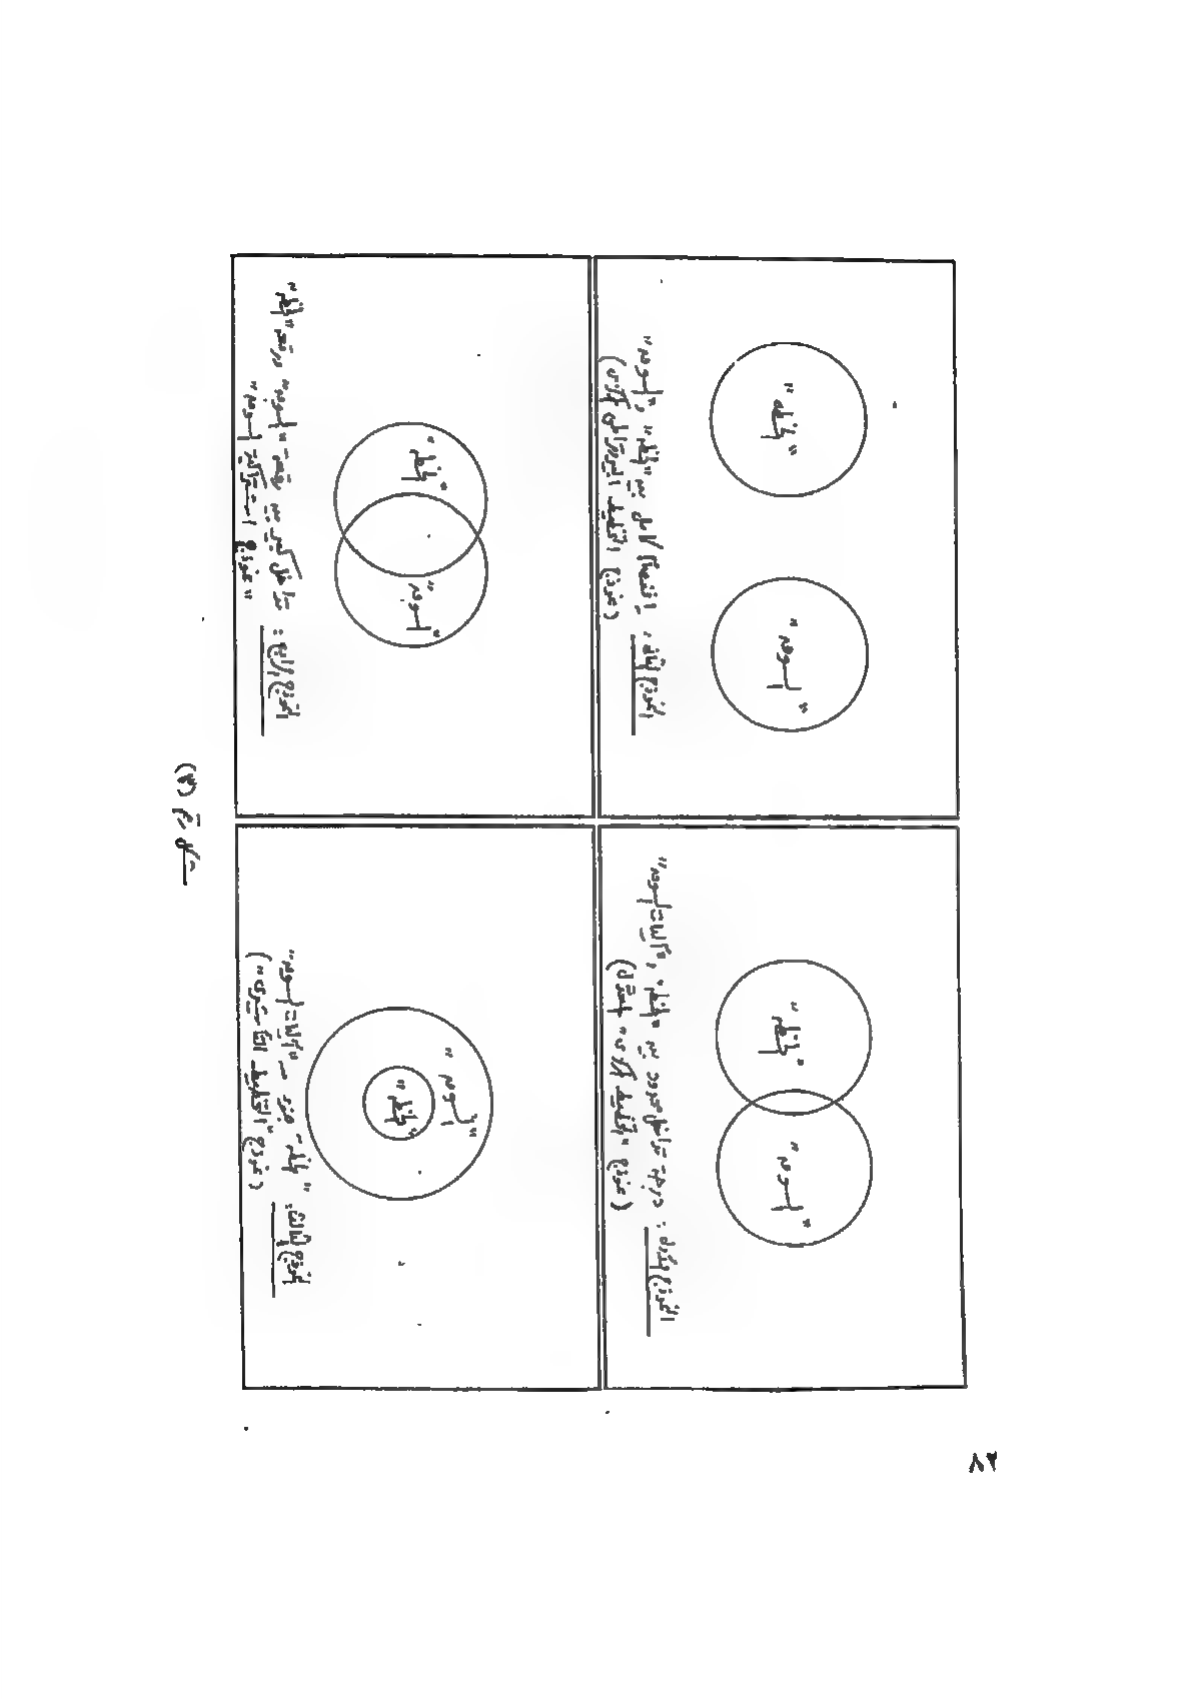 "الخطة"
"السوق"
النموذج الأول: درجة تداخل محدود بين "الخطة" و"آليات السوق"
(نموذج "التخطيط
"الخطة"
"السوق"
النموذج الثاني: إنفصام كامل بين "الخطة" و"السوق"
(نموذج التخطيط البيروقراطي المركزي)
"السوق"
"الخطة"
النموذج الثالث: "الخطة" جزء من "آليات السوق"
(نموذج "التخطيط التأشيري")
"الخطة"
"السوق"
النموذج الرابع: تداخل كبير بين "السوق" "الخطة"
"نموذج اشتراكية السوق"
شكل رقم (٣)
٨٢